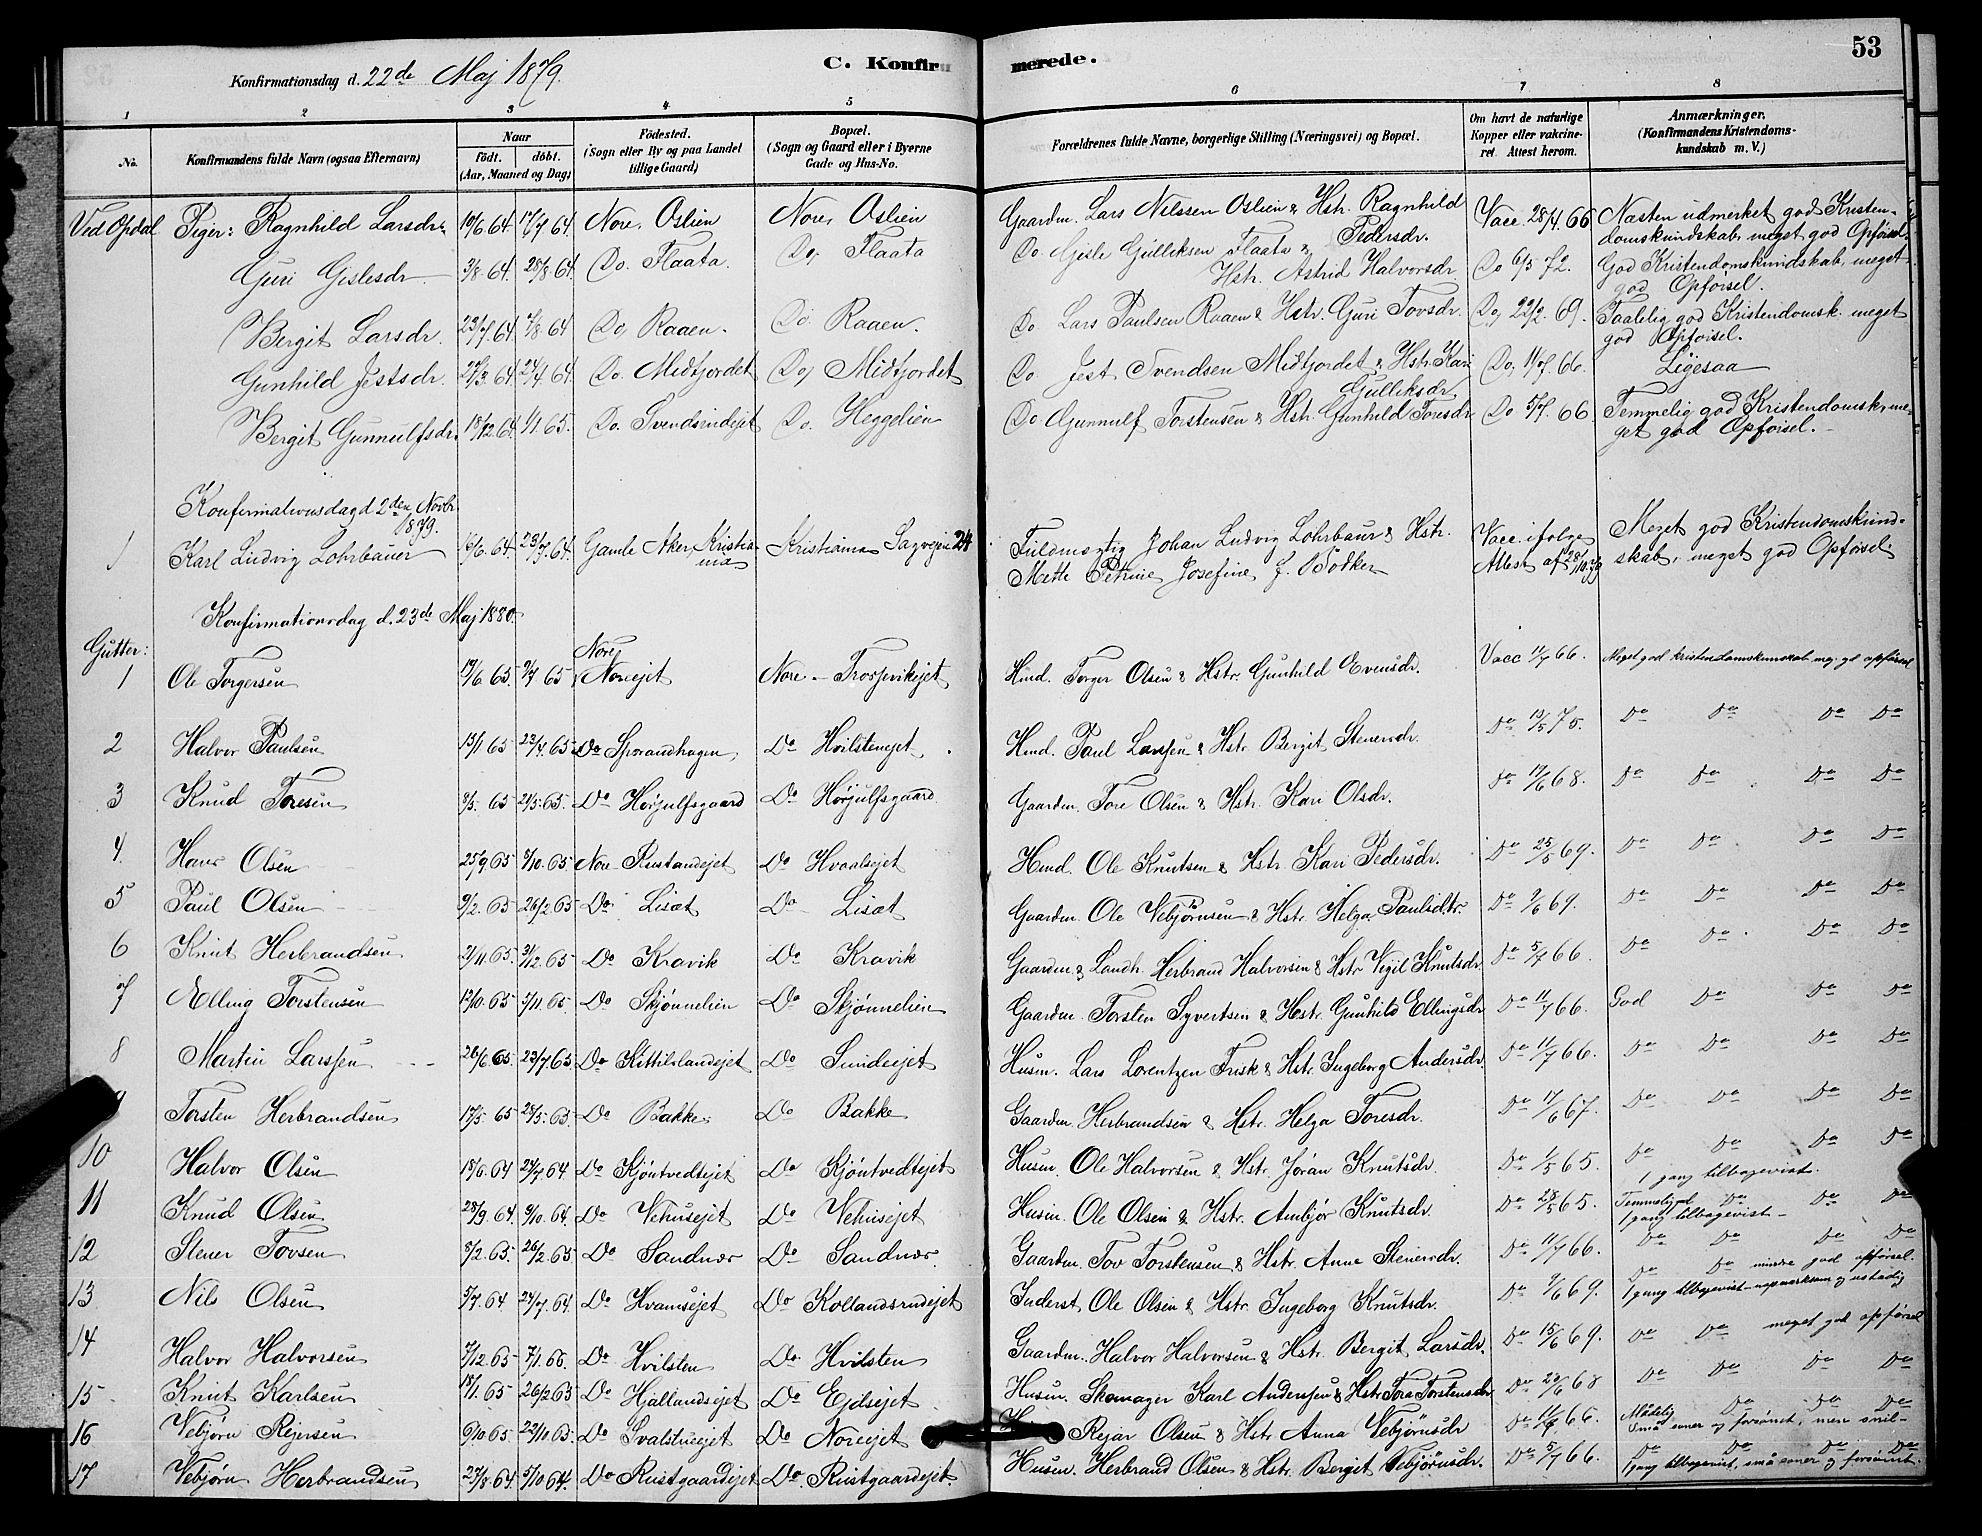 53
Konfirmationsdag d. 22de Maj 1879.
C. Konfirmerede.
1 2 3 4 5 6 7 8
No. Konfirmandens fulde Navn (ogsaa Efternavn) Naar födt. döbt. (Aar, Maaned og Dag) Födested. (Sogn eller By og paa Landet tillige Gaard) Bopæl. (Sogn og Gaard eller i Byerne Gade og Hus-No. Forældrenes fulde Navne, borgerlige Stilling (Næringsvei) og Bopæl. Om havt de naturlige Kopper eller vakcineret. Attest herom. Anmærkninger. (Konfirmandens Kristendomskundskab m. V.)
Ved Opdal Piger: Ragnhild Larsdr. 19/6 64 17/7 64 Nore, Oslien Nore, Oslien Gaardm. Lars Nilssen Oslien & Hstr. Ragnhild Pedersdr. Vacc. 28/4 66 Næsten udmerket god Kristendomskundskab, meget god Opförsel.
Guri Gislesdr. 3/8 64 28/8 64 Do. Flaata. Do, Flaata Do Gisle Gulliksen Flaata & Hstr. Astrid Halvorsdr Do 6/5 72. God Kristendomskundskab, meget god Opförsel.
Bergit Larsdr. 23/7 64 7/8 64 Do, Raaen. Do. Raaen. Do Lars Paulsen Raaen & Hstr. Guri Tovsdr. Do, 22/2. 69. Taalelig god Kristendomsk. meget god Opförsel.
Gunhild Jestsdr. 24/4 64 Do. Midtfjordet Do, Midtfjordet Do Jest Svendsen Midtfjordet & Hstr. Kari Gulleksdr Do, 11/7 66. Ligesaa
Bergit Gunnulfsdr. 18/12 64 1/1 65. Do. Svendsrudejet Do. Heggelien Do Gunnulf Torstensen & Hstr. Gunhild Toresdr Do 5/7. 66 Temmelig god Kristendomsk, meget god Opförsel.
Konfirmationsdag d 2den Novbr. 1879.
1 Karl Ludvig Lohrbauer 16/6. 64. 23/7. 64. Gamle Aker, Kristiania Kristiania Sagvejen 24 Fuldmægtig Johan Ludvig Lohrbaur & Hstr. Mette Petrine Josefine f. Bödker Vacc. ifölge Attest af 28/10 79 Meget god Kristendomskundskab, meget god Opförsel.
Konfirmationsdag d. 23de Maj 1880.
Gutter:
1 Ole Torgersen 19/6 65. 9/7 65 Nore Noreejet Nore - Trosjevikejet Hmd. Torger Olsen & Hstr. Gunhild Evensdr. Vacc 11/7 66. Meget god kristendomskundskab meg. gd opförsel
2 Halvor Paulsen 13/1 65 23/4. 65 Do Sporandhagen Do Hvilstenejet Hmd. Paul Larssen & Hstr. Bergit Stenersdr. Do 13/5 75. Do Do Do Do
3 Knud Toresen 9/5. 65 21/5. 65. Do Hörjulfsgaard Do Hörjulfsgaard Gaardm. Tore Olsen & Hstr. Kari Olsdr. Do 17/6 68. Do Do Do Do
4. Hans Olsen 25/9 65 8/10. 65 Nore Rustandejet Do Hvaalsejet Hmd. Ole Knutsen & Hstr Kari Pedersdr. Do 25/5 69. Do Do Do Do
5 Paul Olsen 9/2. 65 26/2 65 Do Lisæt Do Lisæt Gaardm. Ole Vebjörnsen & Hstr. Helga Paulsdtr. Do 9/6 69. Do Do Do Do
6 Knut Herbrandsen 21/11 65. 31/12. 65 Do Kravik Do Kravik Gaardm. & Landh. Herbrand Halvorsen & Hstr Vigil Knutsdr Do 5/7 66. Do Do Do Do
7 Elling Torstensen 12/10 65 5/11 65 Do Skjønnelien Do Skjønnelien Gaardm. Torsten Syvertsen & Hstr. Gunhild Ellingsdr Do 11/7 66. God Do Do Do
8 Martin Larssen 20/6 65 23/7. 65 Do Kittilslandejet Do Sundeejet Husm. Lars Lorentzen Frisk & Hstr. Ingeborg Andersdr. Do 11/7 66. Do Do Do Do
9 Torsten Herbrandsen 17/5. 65 28/5. 65. Do Bakke Do Bakke Gaardm. Herbrandsen & Hstr. Helga Toresdr. Do 17/6 67. Do Do Do Do
10 Halvor Olsen 18/6. 64 24/7 64 Do Kjöntvedtejet Do Kjöntvedtejet Husm. Ole Halvorsen & Hstr. Jöran Knutsdr. Do 1/5 65. Do Do Do Do 1 gang tilbagevist.
11 Knud Olsen 28/9. 64. 9/10. 64. Do Vehusejet Do Vehusejet Husm. Ole Olsen & Hstr. Ambjör Knutsdr. Do 28/5 65. Temmelig god Do Do Do 1 gang tilbagevist -
12 Stener Tovsen 8/2. 65. 26/2 65 Do Sandnær Do Sandnær. Gaardm. Tov Torstensen & Hstr. Anne Stenersdr. Do 11/7 66. Do Do Do Do
13 Nils Olsen 5/7. 64. 24/7 64. Do Hvamsejet Do Kollandsrudejet Inderst Ole Olsen & Hstr. Ingeborg Knutsdr. Do 9/6 69. Do Do mindre god opförsel. 1 gang tilbagevist - uopmærksom og ustadig
14 Halvor Halvorsen 7/12 65 7/1. 66. Do Hvilsten Do Hvilsten Gaardm. Halvor Halvorsen & Hstr. Bergit Larsdr. Do 15/6 69. Do Do meget god opførsel
15 Knut Karlsen 18/1. 65 26/2 65 Do Hjallandsejet Do Ejdsejet Husm. Skomager Karl Andersen & Hstr Tora Torstensdr. Do 20/6 68 Do Do Do Do
16 Vebjørn Rejersen 6/10 65 22/10 65. Do Svalstueejet Do Noreejet Rejar Olsen & Hstr Anna Vebjörnsdr Do 11/7 66. Mådelig Do Do Do Små evner og forsömt, men snil -
17 Vebjørn Herbrandsen 27/8 64. 5/10 64. Do Rustgaardejet Do Rustgaardejet. Husm. Herbrand Olsen & Hstr. Berget Vebjörnsdr. Do 5/7 66. Do Do Do Do 1 gang tilbagevist, små evner og forsömt.